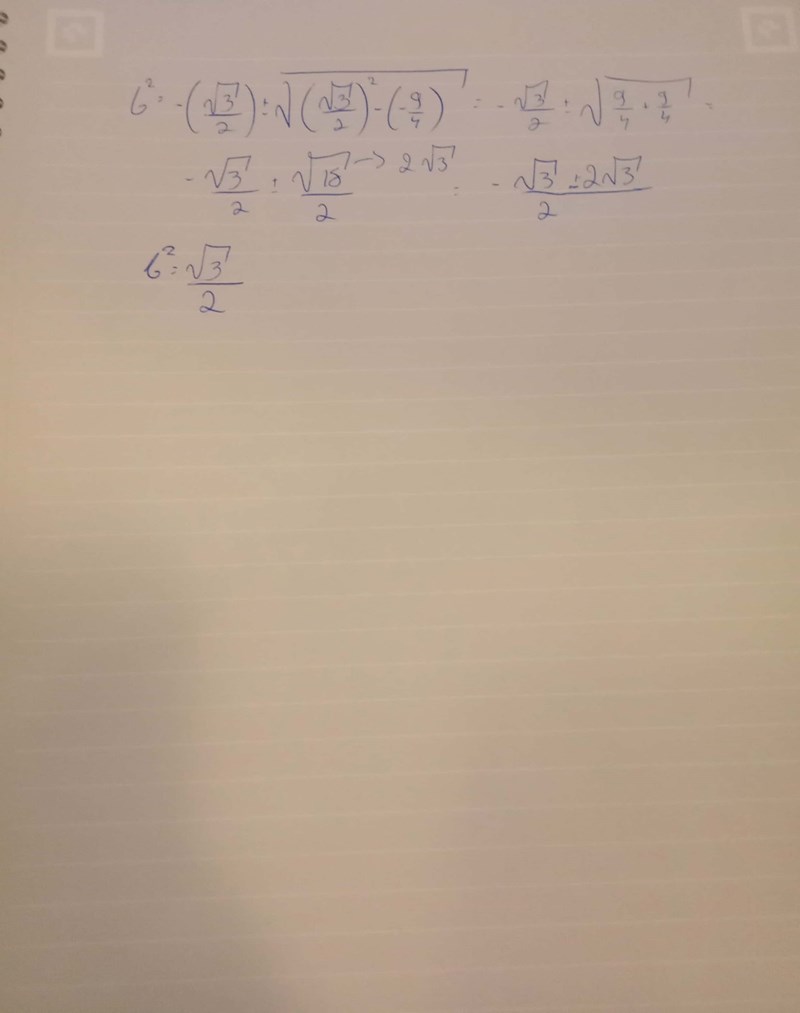 b² = -(√3/2) ± √((√3/2)² - (-9/4)) = -√3/2 ± √(9/4 + 9/4) =
-√3/2 ± √18/2 → 2√3 = -√3 ± 2√3/2
b² = √3/2